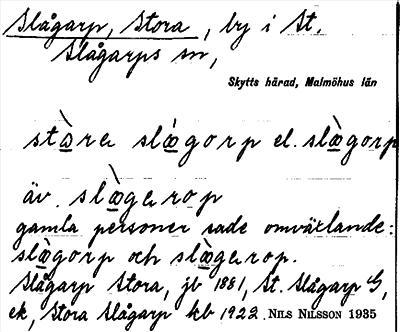 Slågarp, Stora, by i St.
Slågarps sn,
Skytts härad, Malmöhus län
stòra slǿgorp el. slø̀gorp
äv. slø̀garop
gamla personer sade omväxlande:
slø̀gorp och slø̀garop.
Slågarp Stora, jb 1881, St. Slågarp G,
ek, Stora Slågarp kb 1923. NILS NILSSON 1935